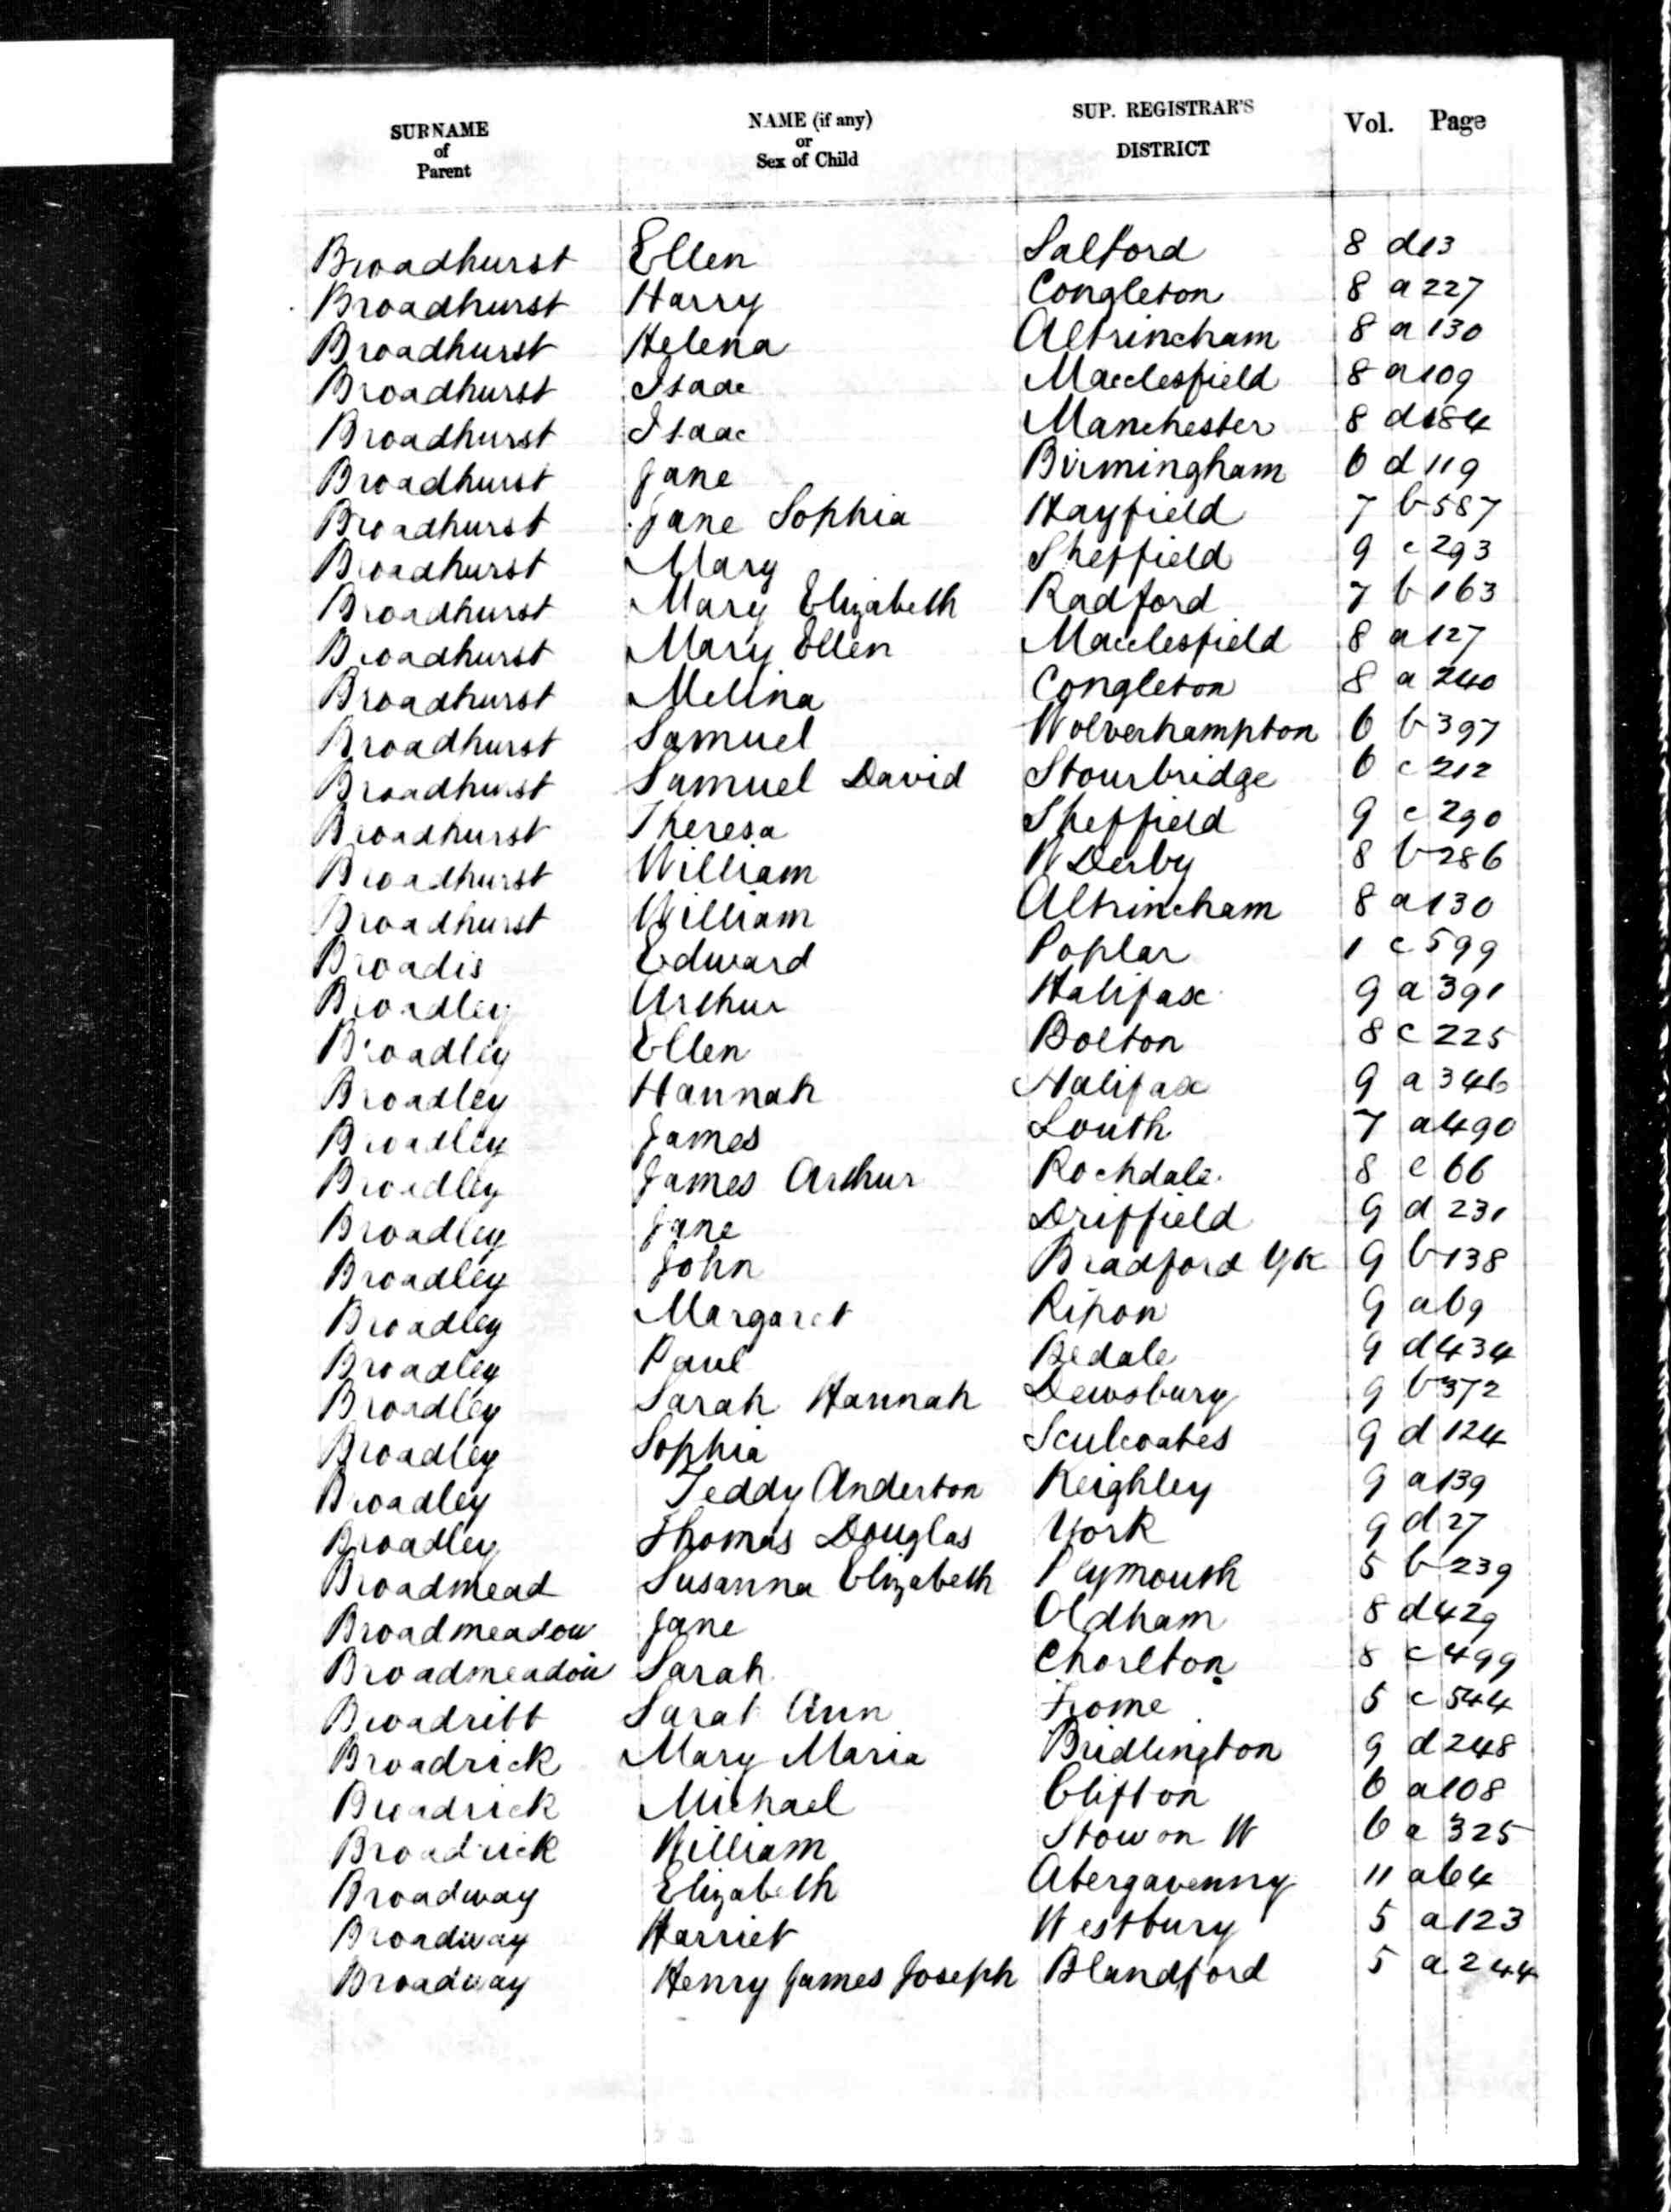 SURNAME of Parent NAME (if any) or Sex of Child SUP. REGISTRAR'S DISTRICT Vol. Page
Broadhurst Ellen Salford 8 d 13
Broadhurst Harry Congleton 8 a 227
Broadhurst Helena Altrincham 8 a 130
Broadhurst Isaac Macclesfield 8 a 109
Broadhurst Isaac Manchester 8 d 184
Broadhurst Jane Birmingham 6 d 119
Broadhurst Jane Sophia Hayfield 7 b 587
Broadhurst Mary Sheffield 9 c 293
Broadhurst Mary Elizabeth Radford 7 b 163
Broadhurst Mary Ellen Macclesfield 8 a 127
Broadhurst Melina Congleton 8 a 240
Broadhurst Samuel Wolverhampton 6 b 397
Broadhurst Samuel David Stourbridge 6 c 212
Broadhurst Theresa Sheffield 9 c 290
Broadhurst William W Derby 8 b 286
Broadhurst William Altrincham 8 a 130
Broadis Edward Poplar 1 c 599
Broadley Arthur Halifax 9 a 391
Broadley Ellen Bolton 8 c 225
Broadley Hannah Halifax 9 a 346
Broadley James Louth 7 a 490
Broadley James Arthur Rochdale 8 e 66
Broadley Jane Driffield 9 d 231
Broadley John Bradford Yk 9 b 138
Broadley Margaret Ripon 9 a 69
Broadley Paul Bedale 9 d 434
Broadley Sarah Hannah Dewsbury 9 b 372
Broadley Sophia Sculcoates 9 d 124
Broadley Teddy Anderton Keighley 9 a 139
Broadley Thomas Douglas York 9 d 27
Broadmead Susanna Elizabeth Plymouth 5 b 239
Broadmeadow Jane Oldham 8 d 429
Broadmeadow Sarah Chorlton 8 c 499
Broadribb Sarah Ann Frome 5 c 544
Broadrick Mary Maria Bridlington 9 d 248
Broadrick Michael Clifton 6 a 108
Broadrick William Stow on W 6 a 325
Broadway Elizabeth Abergavenny 11 a 64
Broadway Harriet Westbury 5 a 123
Broadway Henry James Joseph Blandford 5 a 244